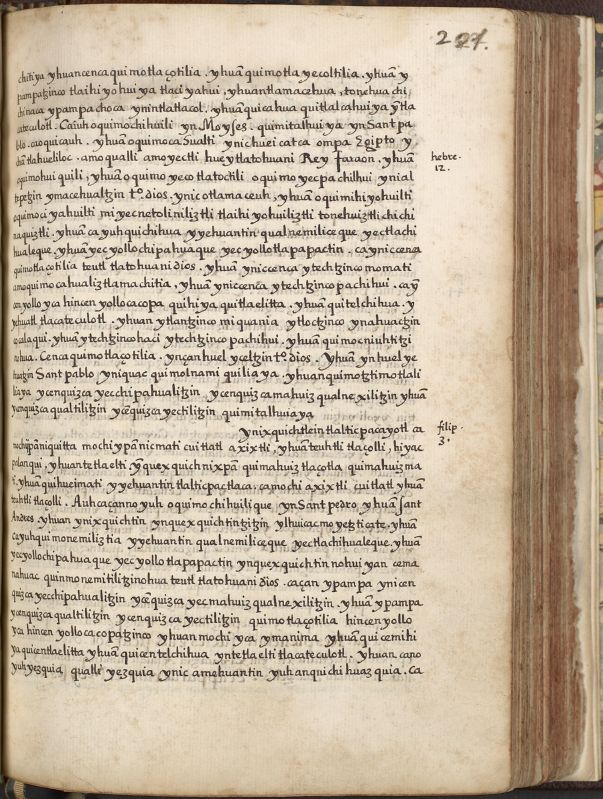 227.
chitiya yhuan cenca quimotlaçotilia. yhuā quimotlayecoltilia. yhuā y
pampatzinco tlaihiyohuiya tlaciyahui, yhuan tlamacehua, tonehua chi
chinaca ypampa choca yn intlatlacol. yhuā quicahua quitlalcahuiya ȳ tla
cateculotl. Ca iuh oquimochihuili yn Moyses. quimitalhuiya yn Sant pa
blo. ca oquicauh. yhuā oquimocasualti yn ichuei catca ompa Egipto y
chā tlahueliloc. amo qualli amo yectli huey tlatohuani Rey faraon. yhuā
oquimohuiquili, yhuā oquimoyecotlatoctili oquimoyecpachilhui yn ial
tepetzin ymacehualtzin tº. dios. yn icotlamaceuh, yhuā oquimihiyohuilti
oquimociyahuilti miyec netoliniliztli tlaihiyohuiliztli tonehuiztli chichi
naquiztli. yhuā ca yuh quichihua y yehuantin qualnemilice que yectlachi
hualeque. yhuā yecyollochipahuaque yecyollotlapapactin. ca yniccenca
quimotlaçotilia teutl tlatohuani dios. yhuā yniccenca ytechtzinco momati
amo quimocahualiztlamachitia, yhuā yniccenca ytechtzinco pachihui. caȳ
cenyollo yca hincenyollocacopa quihiya quitlaelitta. yhuā quitelchihua. y
yehuatl tlacatecolotl. yhuan ytlantzinco miquania ytloctzinco ynahuactzin
co calaqui. yhuā ytechtzinco haci ytechtzinco pachihui. yhuā quimocniuhtitzi
nohua. Cenca quimotlaçotilia. yn çan huel yceltzin tº. dios. yhuā yn huel ye
huatzin Sant pablo yniquac quimolnamiquiliaya. yhuan quimottimotlali
liaya ycenquizca yecchipahualitzin ycenquizcamahuizqualnexilitzin yhuā
ycenquizcaqualtilitzin ycēquizcayectilitzin quimitalhuiaya
ynixquich tlein tlalticpacayotl ca
nochi ypāniquitta mochi ypānicmati cuitlatl axixtli, yhuā teuhtli tlaçolli, hiyac
palanqui, yhuan tetlaelti ȳquexquich nixpā quimahuiztlaçotla quimahuizma
ti. yhuā quihueimati yyehuantin tlalticpactlaca, ca mochi axixtli cuitlatl yhuā
teuhtli tlaçolli. Auh caçanno yuh oquimochihuilique yn Sant pedro yhuā sant
Andres. yhuan ynixquichtin ynquexquichtintzitzin ylhuicac moyetzticate. yhuā
ca yuhqui monemiliztia yyehuantin qualnemiliceque yectlachihualeque. yhuā
yecyollochipahuaque yecyollotlapapactin ynquexquichtin nohuiyan cema
nahuac quinmonemitilitzinohua teutl tlatohuani dios. caçan ypampa ynicen
quizcayecchipahualitzin ycēquizcayecmahuizqualnexilitzin. yhuā ypampa
ycenquizcaqualtilitzin ycenquizcayectilitzin quimotlaçotilia hincenyollo
yca hincenyollocacopatzinco yhuan mochi yca ymanima, yhuā quicemihi
ya quicentlaelitta yhuā quicentelchihua yntetlaelti tlacatecolotl. yhuan. cano
yuh yezquia qualli yezquia ynic amehuantin yuh anquichihuazquia. Ca
hebre.
12.
filip.
3.